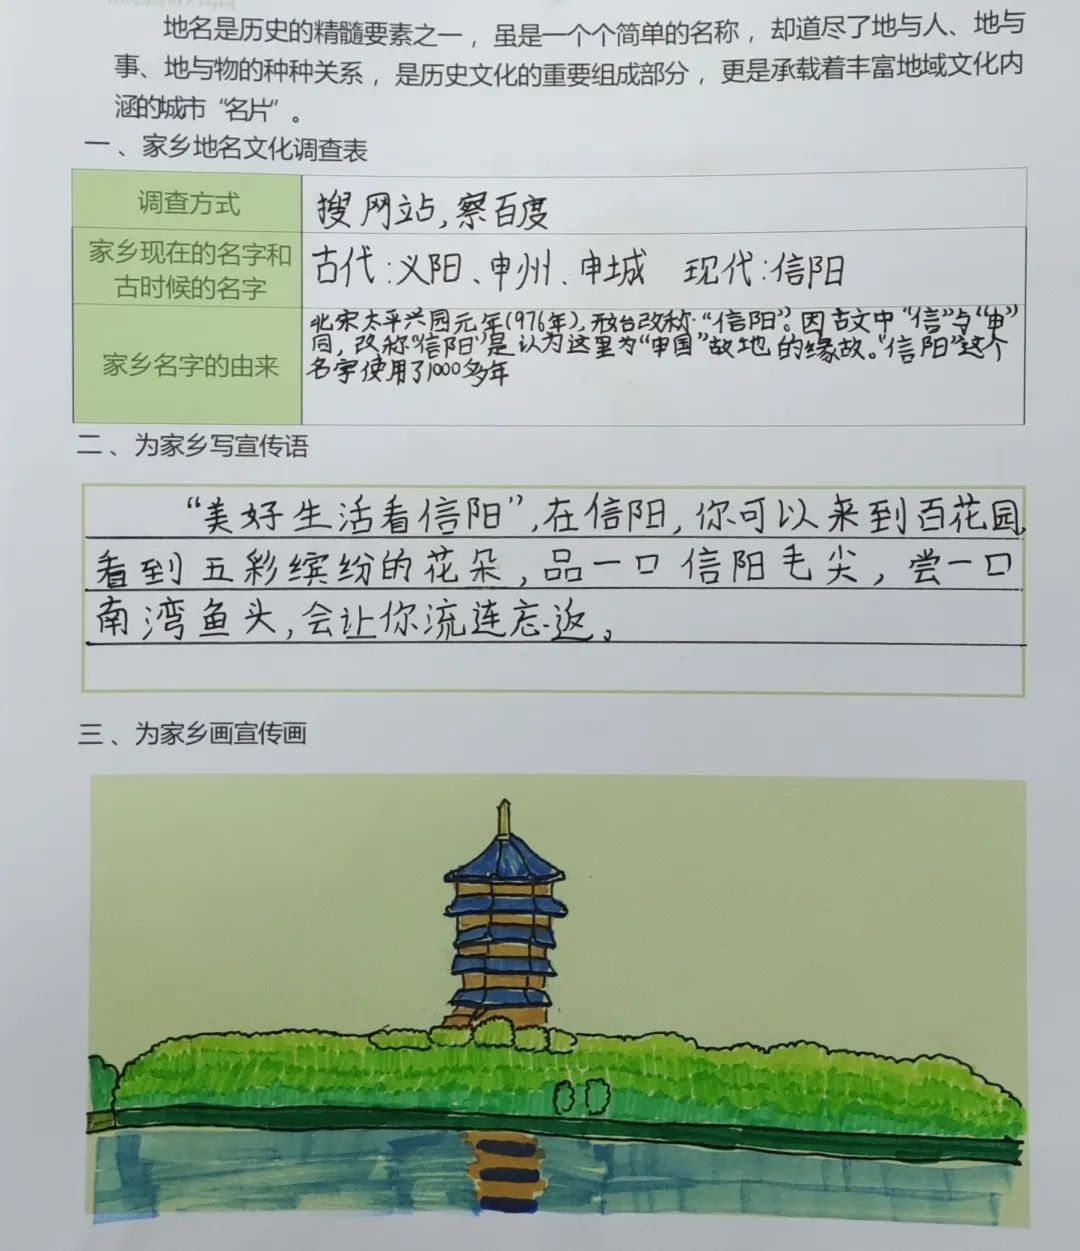 地名是历史的精髓要素之一，虽是一个个简单的名称，却道尽了地与人、地与
事、地与物的种种关系，是历史文化的重要组成部分，更是承载着丰富地域文化内
涵的城市“名片”。
一、家乡地名文化调查表
调查方式
搜网站,察百度
家乡现在的名字和
古时候的名字
古代:义阳、申州、申城 现代:信阳
家乡名字的由来
北宋太平兴国元年(976年),开始改称“信阳”。因古文中“信”与“申”
同,改称“信阳”是认为这里为“申国”故地的缘故。“信阳”这个
名字使用了1000多年
二、为家乡写宣传语
“美好生活看信阳”,在信阳,你可以来到百花园
看到五彩缤纷的花朵,品一口信阳毛尖,尝一口
南湾鱼头,会让你流连忘返。
三、为家乡画宣传画